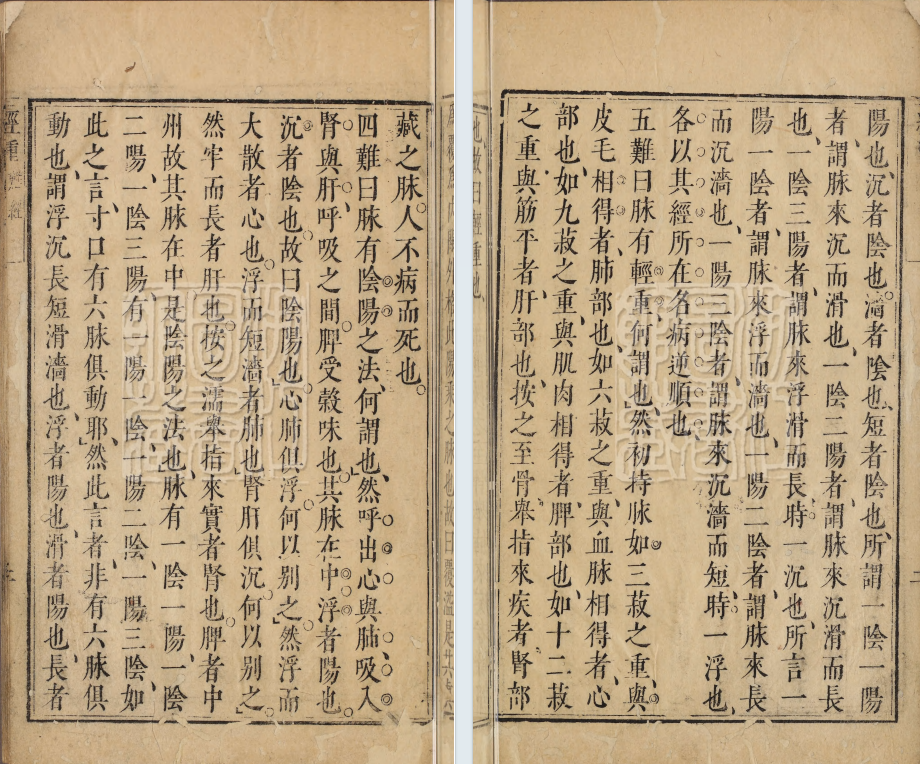 藏之脉人不病而死也
四難曰脉有陰陽之法何謂也然呼出心與肺吸入
腎與肝呼吸之間脾受穀味也其脉在中浮者陽也
沉者陰也故曰陰陽也心肺俱浮何以別之然浮而
大散者心也浮而短濇者肺也腎肝俱沉何以別之
然牢而長者肝也按之濡舉指來實者腎也脾者中
州故其脉在中是陰陽之法也脉有一陰一陽一陰
二陽一陰三陽有一陽一陰一陽二陰一陽三陰如
此之言寸口有六脉俱動耶然此言者非有六脉俱
動也謂浮沉長短滑濇也浮者陽也滑者陽也長者
陽也沉者陰也濇者陰也短者陰也所謂一陰一陽
者謂脉來沉而滑也一陰二陽者謂脉來沉滑而長
也一陰三陽者謂脉來浮滑而長時一沉也所言一
陽一陰者謂脉來浮而濇也一陽二陰者謂脉來長
而沉濇也一陽三陰者謂脉來沉濇而短時一浮也
各以其經所在名病逆順也
五難曰脉有輕重何謂也然初持脉如三菽之重與
皮毛相得者肺部也如六菽之重與血脉相得者心
部也如九菽之重與肌肉相得者脾部也如十二菽
之重與筋平者肝部也按之至骨舉指來疾者腎部